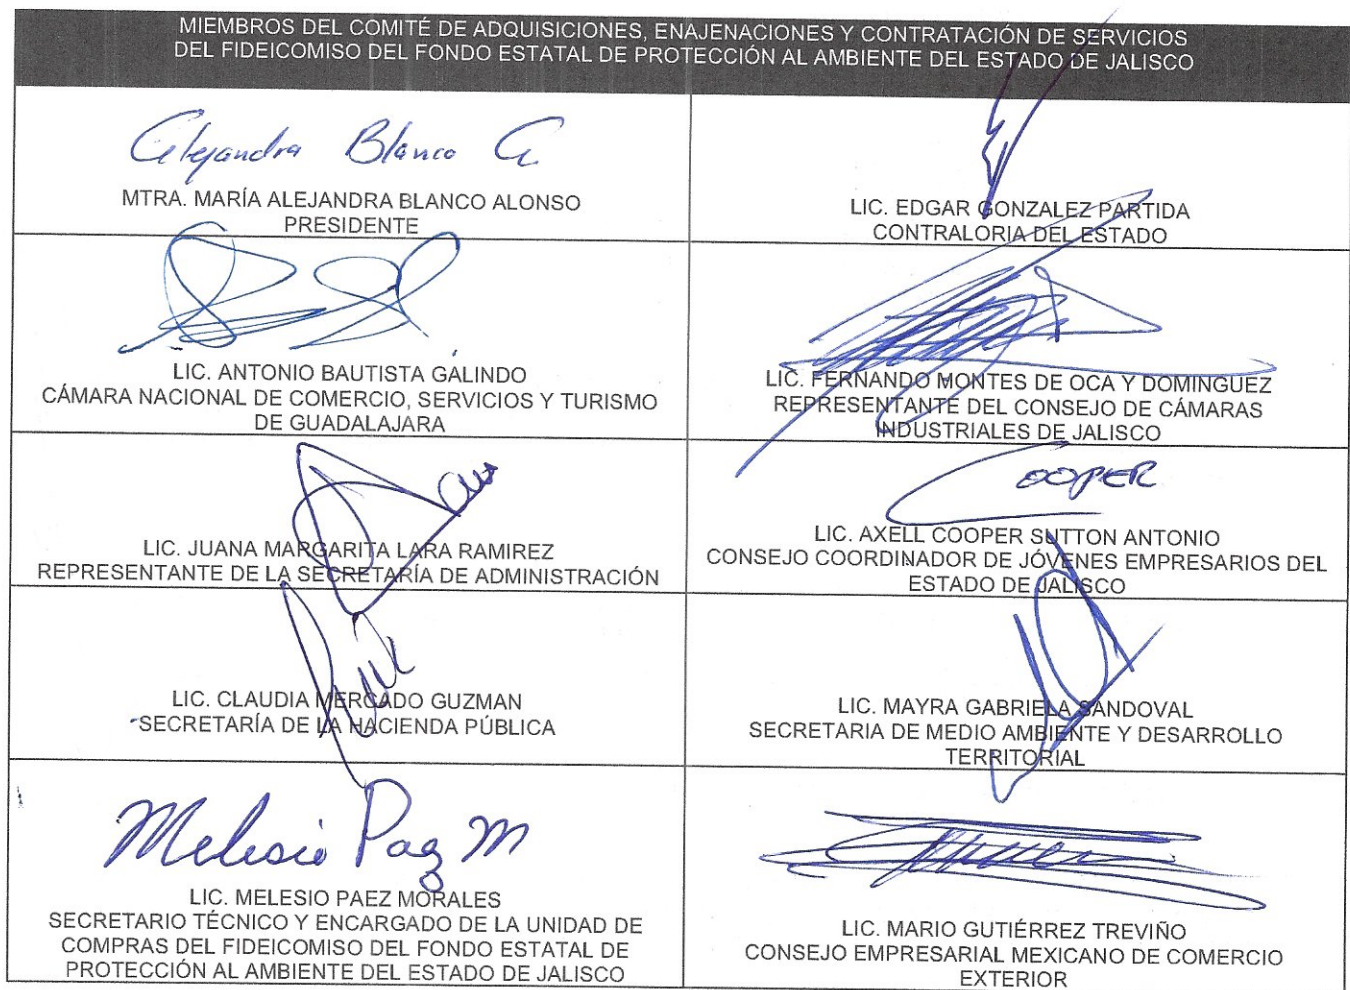 MIEMBROS DEL COMITÉ DE ADQUISICIONES, ENAJENACIONES Y CONTRATACIÓN DE SERVICIOS
DEL FIDEICOMISO DEL FONDO ESTATAL DE PROTECCIÓN AL AMBIENTE DEL ESTADO DE JALISCO
Alejandra Blanco A
MTRA. MARÍA ALEJANDRA BLANCO ALONSO
PRESIDENTE
LIC. EDGAR GONZALEZ PARTIDA
CONTRALORIA DEL ESTADO
LIC. ANTONIO BAUTISTA GALINDO
CÁMARA NACIONAL DE COMERCIO, SERVICIOS Y TURISMO
DE GUADALAJARA
LIC. FERNANDO MONTES DE OCA Y DOMINGUEZ
REPRESENTANTE DEL CONSEJO DE CÁMARAS
INDUSTRIALES DE JALISCO
LIC. JUANA MARGARITA LARA RAMIREZ
REPRESENTANTE DE LA SECRETARÍA DE ADMINISTRACIÓN
COOPER
LIC. AXELL COOPER SUTTON ANTONIO
CONSEJO COORDINADOR DE JÓVENES EMPRESARIOS DEL
ESTADO DE JALISCO
LIC. CLAUDIA MERCADO GUZMAN
SECRETARÍA DE LA HACIENDA PÚBLICA
LIC. MAYRA GABRIELA SANDOVAL
SECRETARIA DE MEDIO AMBIENTE Y DESARROLLO
TERRITORIAL
Melesio Paez M
LIC. MELESIO PAEZ MORALES
SECRETARIO TÉCNICO Y ENCARGADO DE LA UNIDAD DE
COMPRAS DEL FIDEICOMISO DEL FONDO ESTATAL DE
PROTECCIÓN AL AMBIENTE DEL ESTADO DE JALISCO
LIC. MARIO GUTIÉRREZ TREVIÑO
CONSEJO EMPRESARIAL MEXICANO DE COMERCIO
EXTERIOR